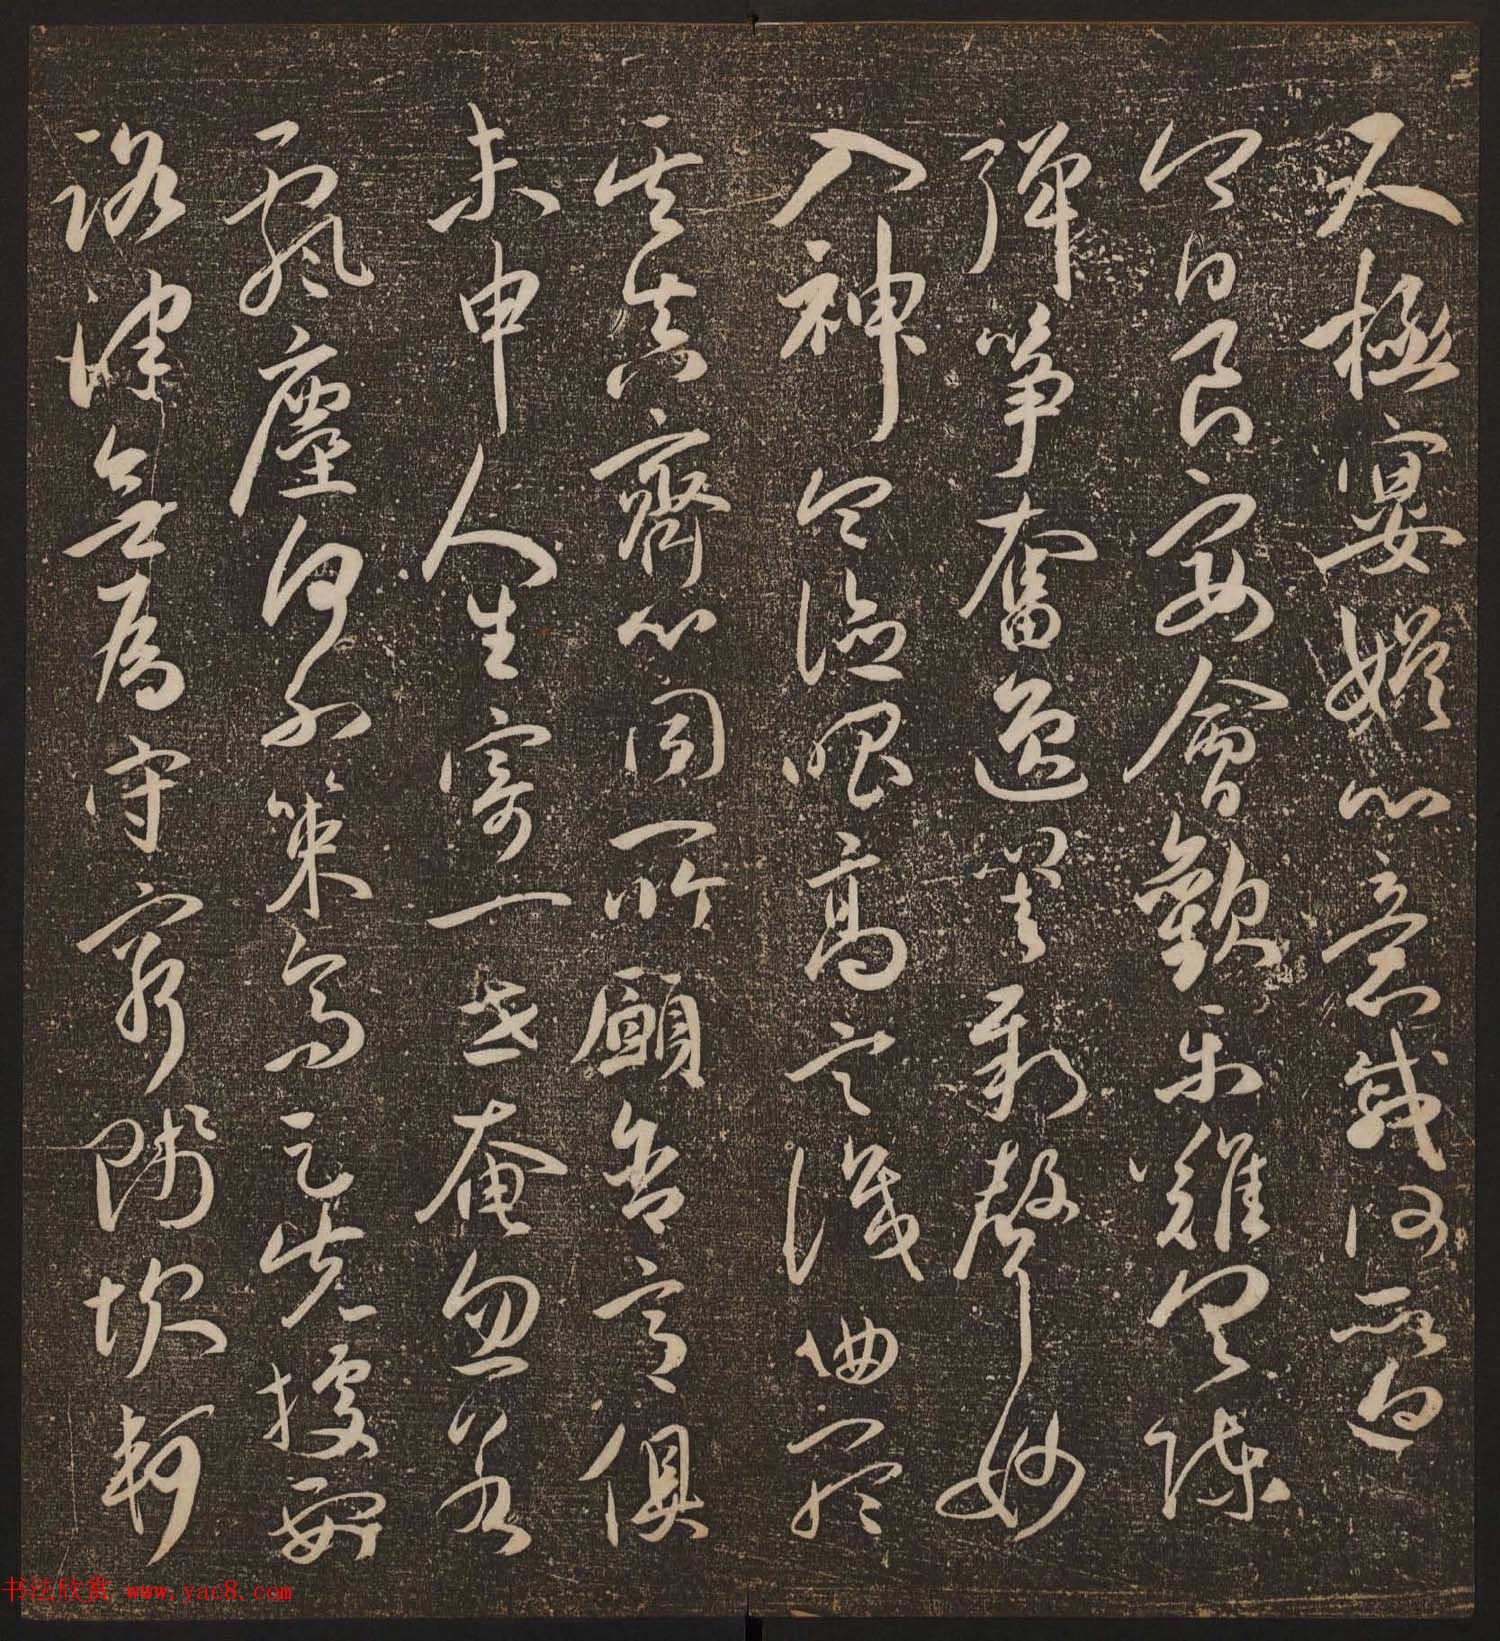 尺極宴娛心意戚何所迫
今日良宴會歡樂難具陳
彈箏奮逸響新聲妙
入神令德唱高言識曲聽
其真齊心同所願含意俱
未申人生寄一世奄忽若
飆塵何不策高足先據要
路津無為守窮賤坎軻
书法欣赏 www.yac8.com